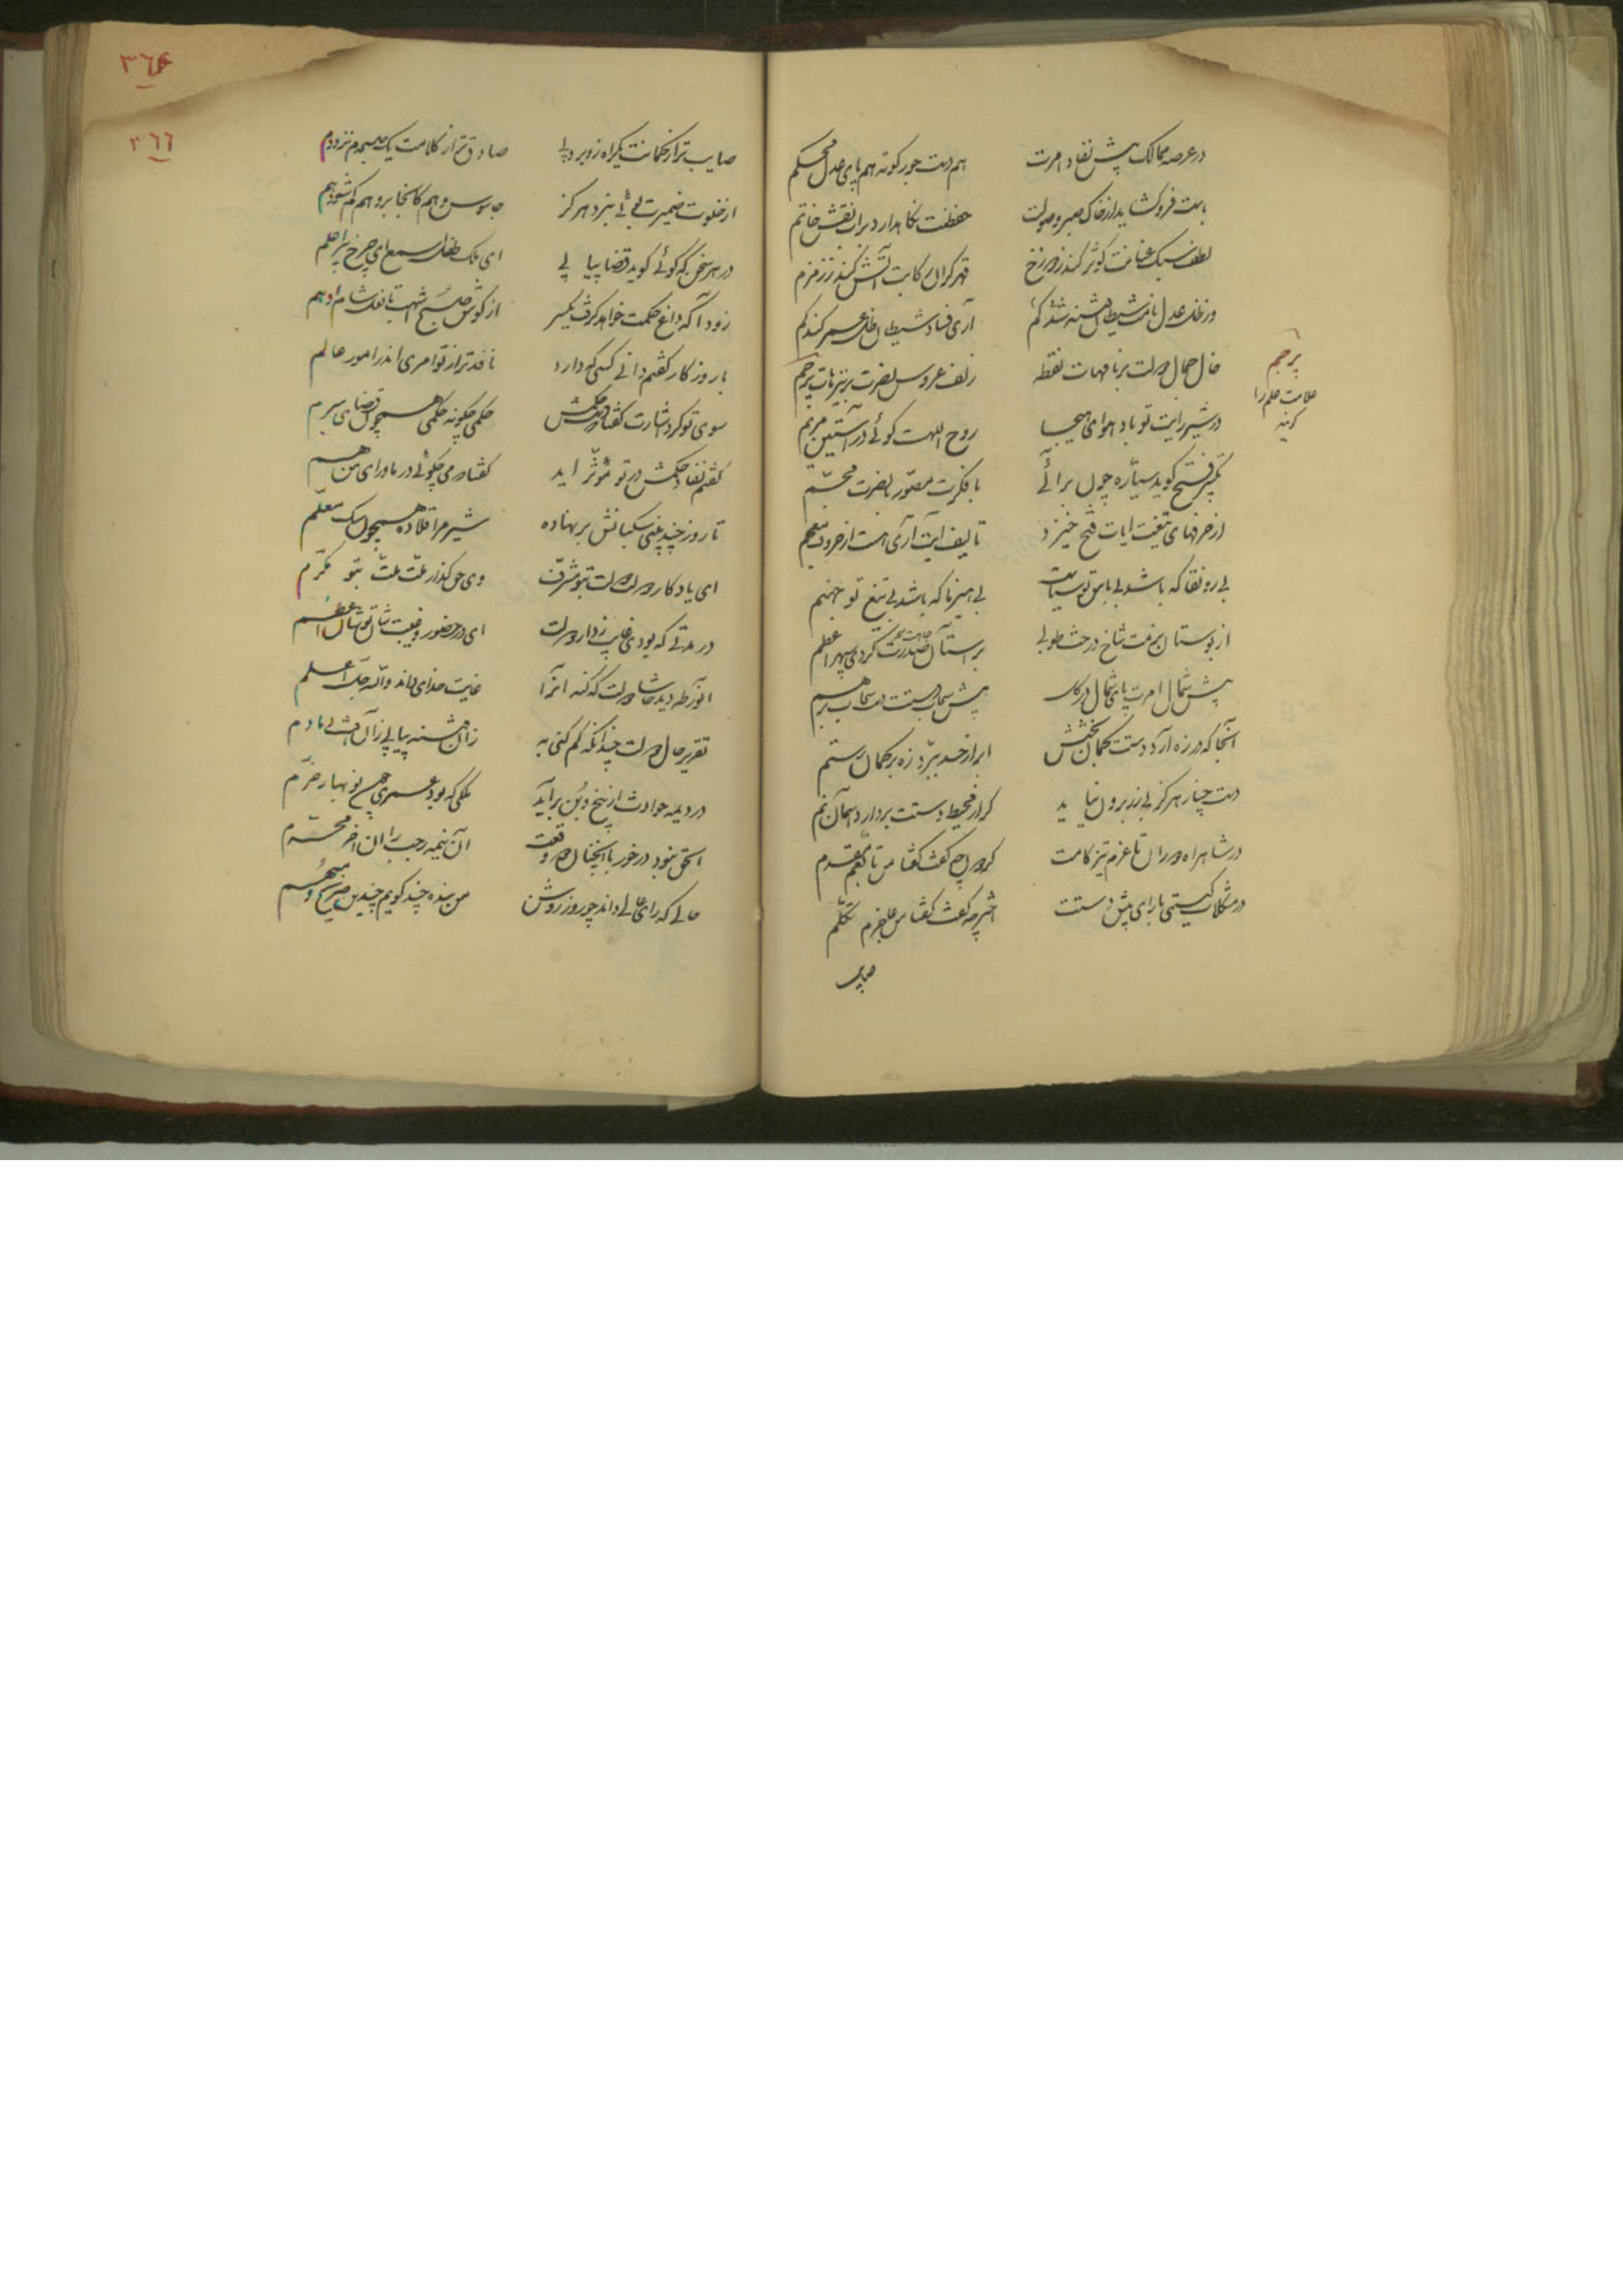 در عرصه ممالک پیش نفاذ امرت هم دست جور کوته هم پای عدل محکم
باست فرو کشاید از خاک صبر و صولت حفظت نکاهدارد بر آب نقش خاتم
لطف سبک عنانت کوثر کند ز دوزخ قهر کران رکابت آتش کند ز زمزم
در ظل عدل شیطان فتنه شد کم آری فساد شیطان ظل عمر کند کم
خال جمال دولت بر نامهات نقطه زلف عروس نصرت بر نیزهات پرچم
پرچم
علامت علم را
کویند
در شیر رایت تو باد هوای هیجا روح اللهست کوئی در آستین مریم
تکبیر فتح کوید سیاره چون برآئی با فکرت مصور با نصرت مجسم
از حرفهای تیغت ایات فتح خیزد تالیف آیت آری هست از حروف معجم
بی رونقا که باشد بی باس تو سیاست بی هیزما که باشد بی تیغ تو جهنم
از بوستان بزمت شاخ درخت طوبی بر آستان صدرت کردی سپهر اعظم
پیش شمال امرت پای شمال در کل پیش سحاب دستت دست سحاب بر هم
آنجا که در زه آرد دستت کمان بخشش ابر از حسد ببرد زه بر کمان رستم
دست چنار هرکز بی زر برون نیاید کر از محیط دستت بردارد آسمان نم
در شاهراه دوران با عزم تیز کامت
در مشکلات کیتی با رای پیش دستت اختر چه کفت کفتا من عاجزم تکلم
صایب
۳۶۶
صایب تر از کمانت یکراه زو بر ولی صادق تر از کلامت یک صبحدم نزد دم
از خلوت ضمیرت بوئی نبرد هرکز جاسوس وهم کانجا بر وهم کم شود هم
در هر سخن که کوئی کوید قضا پیاپی ای ملک طفلک اسمع ای چرخ پیر اعلم
زود آ که داغ حکمت خواهد کرفت یکسر از کوش صبح اشهب تا نعل شام ادهم
با روزکار کفتم دانی کسی که دارد نافذتر از تو امری اندر امور عالم
سوی تو کرد اشارت کفتا که حکمش حکمی چکونه حکمی همچون قضای مبرم
کفتم نفاذ حکمش در تو مؤثر اید کفتا می چکوئی در ماورای من هم
تا روز چند بینی سکبانش بر نهاده شیر مرا قلاده همچون سک معلم
ای یادکار دولت دولت بتو مشرف وی حق کذار ملت ملت بتو مکرم
در مدتی که بودی غایب ز دار دولت ای در حضور و غیبت شان تو شان اعظم
دولت که کنه آنرا غایت خدای داند والله جل اعلم
تقریر حال دولت چندانکه کم کنی به
در دیمه حوادث از بیخ و بن برآید ملکی که بود عمری چون نوبهار خرم
الحق نبود در خور با آنچنان وقعت آن نیمه رجب را آن آخر محرم
حالی که رای عالی داند چو روز روشن من بنده چند کویم چندین صریح و مبهم